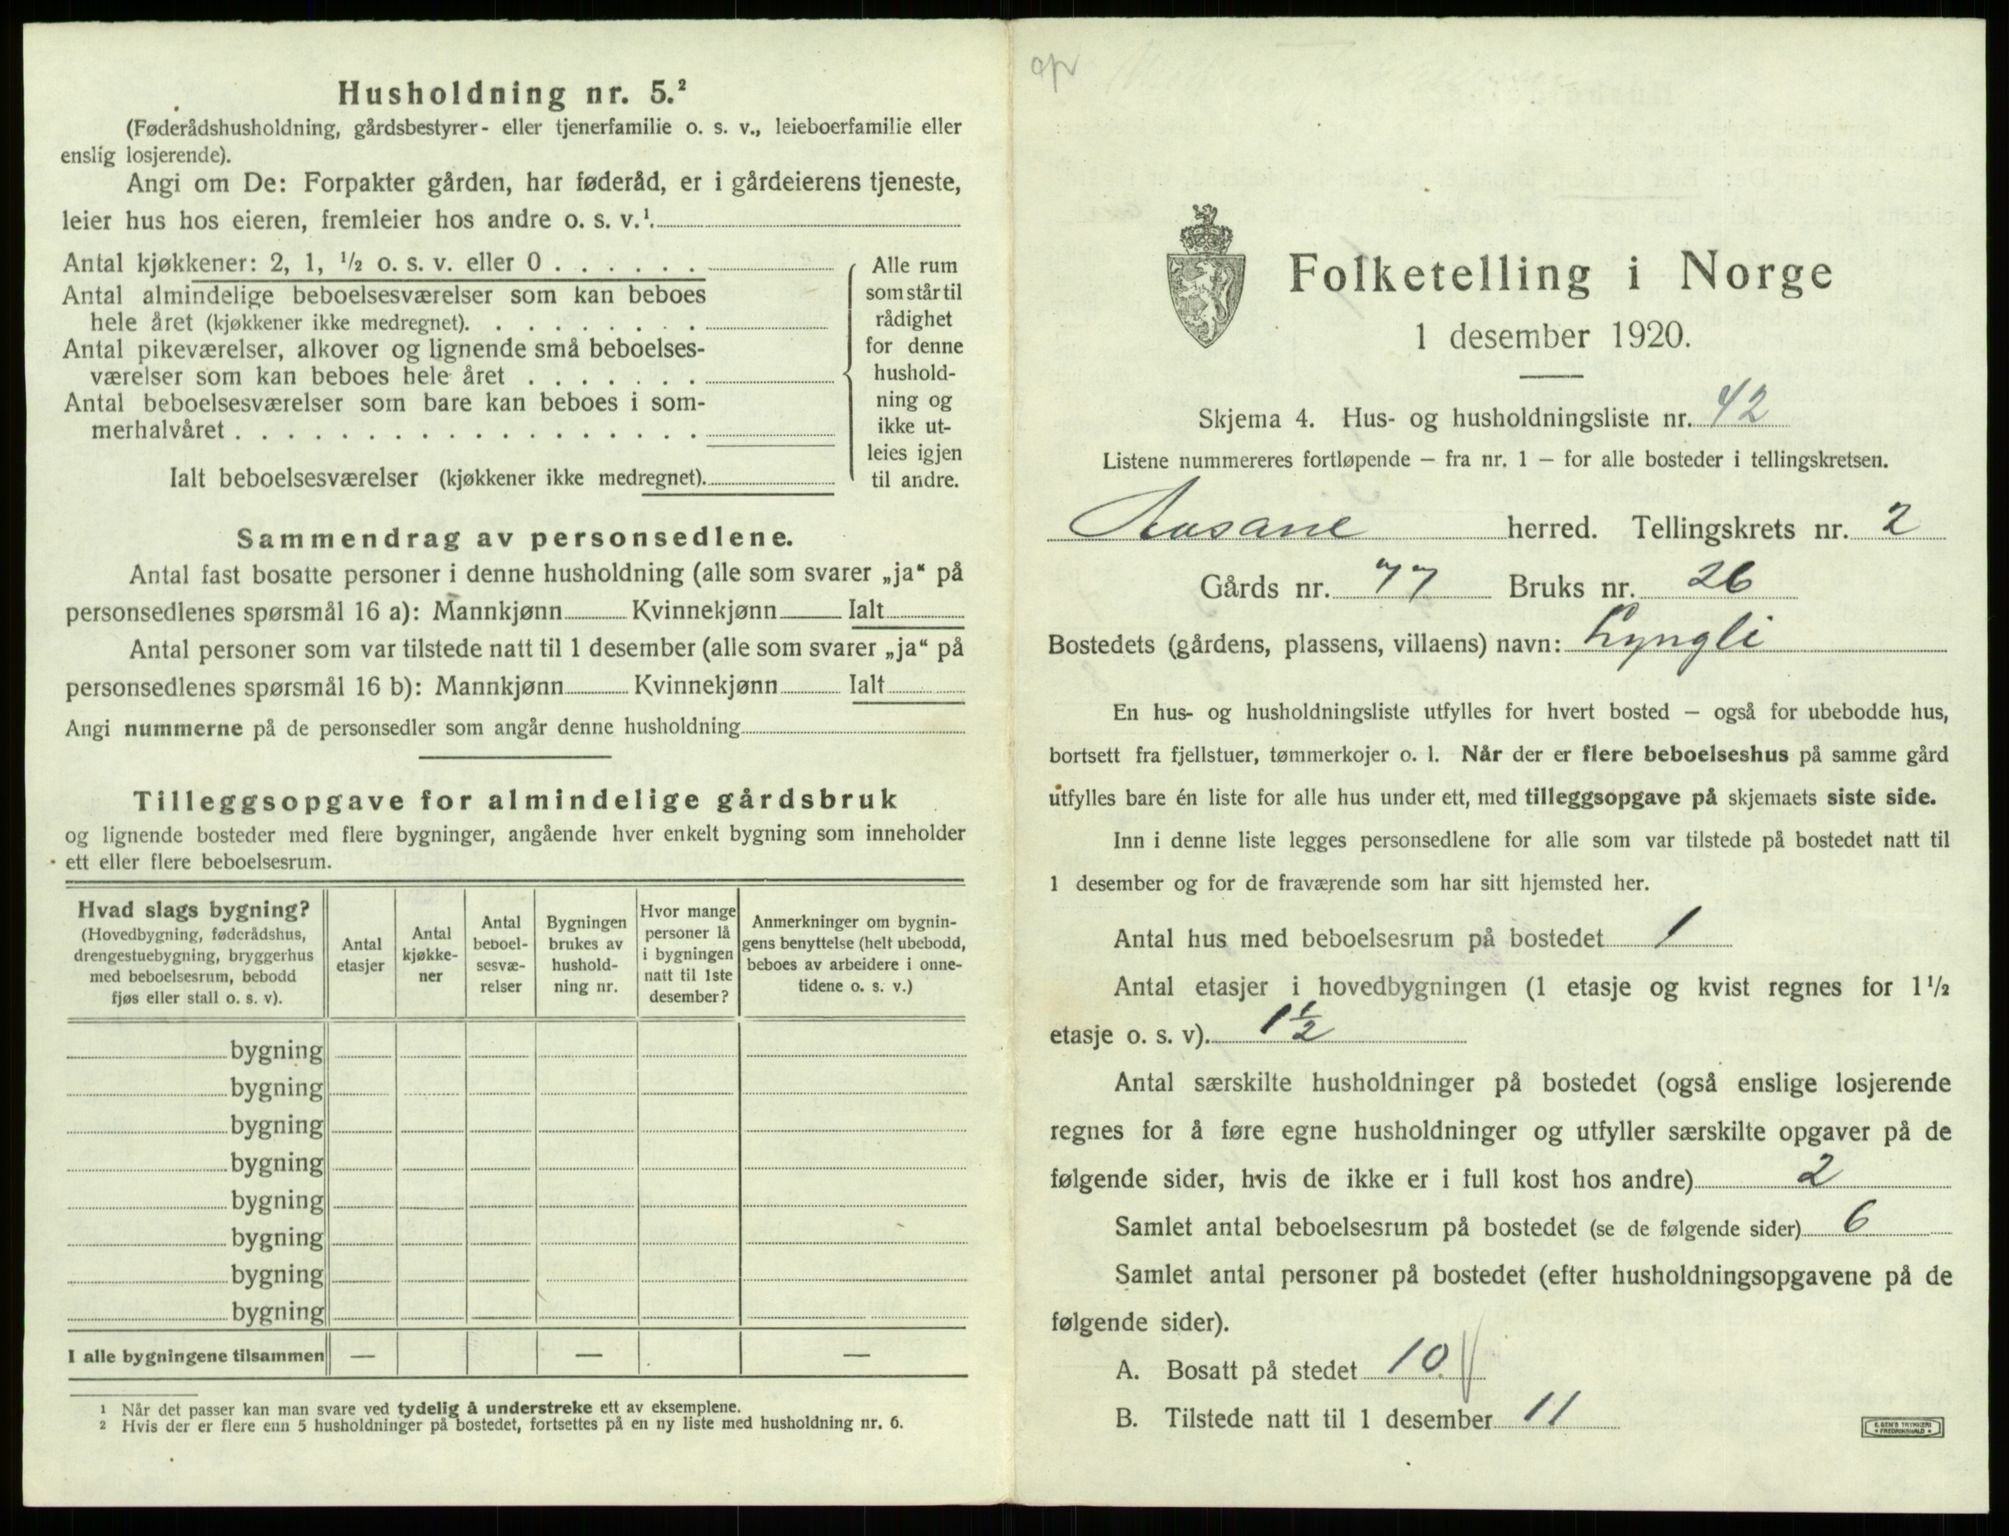 Husholdning nr. 5.²
(Føderådshusholdning, gårdsbestyrer- eller tjenerfamilie o. s. v., leieboerfamilie eller
enslig losjerende).
Angi om De: Forpakter gården, har føderåd, er i gårdeierens tjeneste,
leier hus hos eieren, fremleier hos andre o. s. v.¹.
Antal kjøkkener: 2, 1, ½ o. s. v. eller 0 . . . . . .
Antal almindelige beboelsesværelser som kan beboes
hele året (kjøkkener ikke medregnet). . . . . . . . .
Antal pikeværelser, alkover og lignende små beboelses-
værelser som kan beboes hele året . . . . . . .
Antal beboelsesværelser som bare kan beboes i som-
merhalvåret . . . . . . . . . . . . . . . . . .
Ialt beboelsesværelser (kjøkkener ikke medregnet).
Alle rum
som står til
rådighet
for denne
hushold-
ning og
ikke ut-
leies igjen
til andre.
Sammendrag av personsedlene.
Antal fast bosatte personer i denne husholdning (alle som svarer „ja“ på
personsedlenes spørsmål 16 a): Mannkjønn Kvinnekjønn Ialt
Antal personer som var tilstede natt til 1 desember (alle som svarer „ja“ på
personsedlenes spørsmål 16 b): Mannkjønn Kvinnekjønn Ialt
Angi nummerne på de personsedler som angår denne husholdning
Tilleggsopgave for almindelige gårdsbruk
og lignende bosteder med flere bygninger, angående hver enkelt bygning som inneholder
ett eller flere beboelsesrum.
Hvad slags bygning?
(Hovedbygning, føderådshus,
drengestuebygning, bryggerhus
med beboelsesrum, bebodd
fjøs eller stall o. s. v).
Antal
etasjer
Antal
kjøkke-
ner
Antal
beboel-
sesvæ-
relser
Bygningen
brukes av
hushold-
ning nr.
Hvor mange
personer lå
i bygningen
natt til 1ste
desember?
Anmerkninger om bygnin-
gens benyttelse (helt ubebodd,
beboes av arbeidere i onne-
tidene o. s. v.)
bygning
bygning
bygning
bygning
bygning
bygning
bygning
bygning
I alle bygningene tilsammen — — —
¹ Når det passer kan man svare ved tydelig å understreke ett av eksemplene.
² Hvis der er flere enn 5 husholdninger på bostedet, fortsettes på en ny liste med husholdning nr. 6.
Folketelling i Norge
1 desember 1920.
Skjema 4. Hus- og husholdningsliste nr. 42
Listene nummereres fortløpende — fra nr. 1 — for alle bosteder i tellingskretsen.
Aasane herred. Tellingskrets nr. 2
Gårds nr. 77 Bruks nr. 26
Bostedets (gårdens, plassens, villaens) navn: Lyngli
En hus- og husholdningsliste utfylles for hvert bosted — også for ubebodde hus,
bortsett fra fjellstuer, tømmerkojer o. l. Når der er flere beboelseshus på samme gård
utfylles bare én liste for alle hus under ett, med tilleggsopgave på skjemaets siste side.
Inn i denne liste legges personsedlene for alle som var tilstede på bostedet natt til
1 desember og for de fraværende som har sitt hjemsted her.
Antal hus med beboelsesrum på bostedet 1
Antal etasjer i hovedbygningen (1 etasje og kvist regnes for 1½
etasje o. s. v). 1½
Antal særskilte husholdninger på bostedet (også enslige losjerende
regnes for å føre egne husholdninger og utfyller særskilte opgaver på de
følgende sider, hvis de ikke er i full kost hos andre) 2
Samlet antal beboelsesrum på bostedet (se de følgende sider) 6
Samlet antal personer på bostedet (efter husholdningsopgavene på de
følgende sider).
A. Bosatt på stedet 10
B. Tilstede natt til 1 desember 11